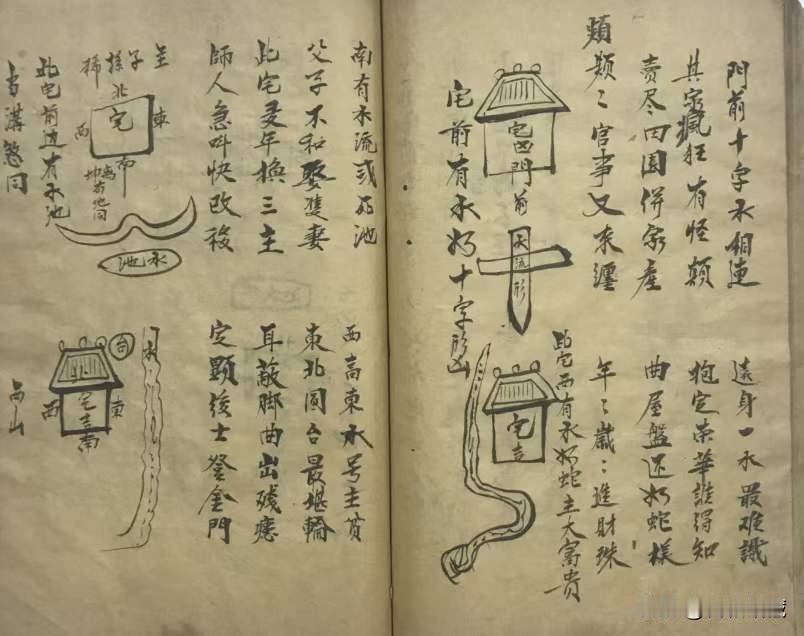 門前十字水相連
其家瘋狂有怪顛
賣尽田園併家產
類類〻官事又來纏
宅西門前
水流形
宅前有水如十字形凶
遠身一水最难識
抱定荣華誰得知
曲屋盤还如蛇樣
年〻歲〻進財珠
宅吉
此宅西有水如蛇主大富貴
南有水流或水池
父子不和娶隻妻
此宅叐年換三主
師人急叫快改移
主子孫稀
北
東
宅
西
南
水池
此宅前边有水池
西高東水号主貧
東北圓台最堪輪
耳蔽脚曲出殘廢
定顕後士登金門
台
水
北
東
宅吉
西
南